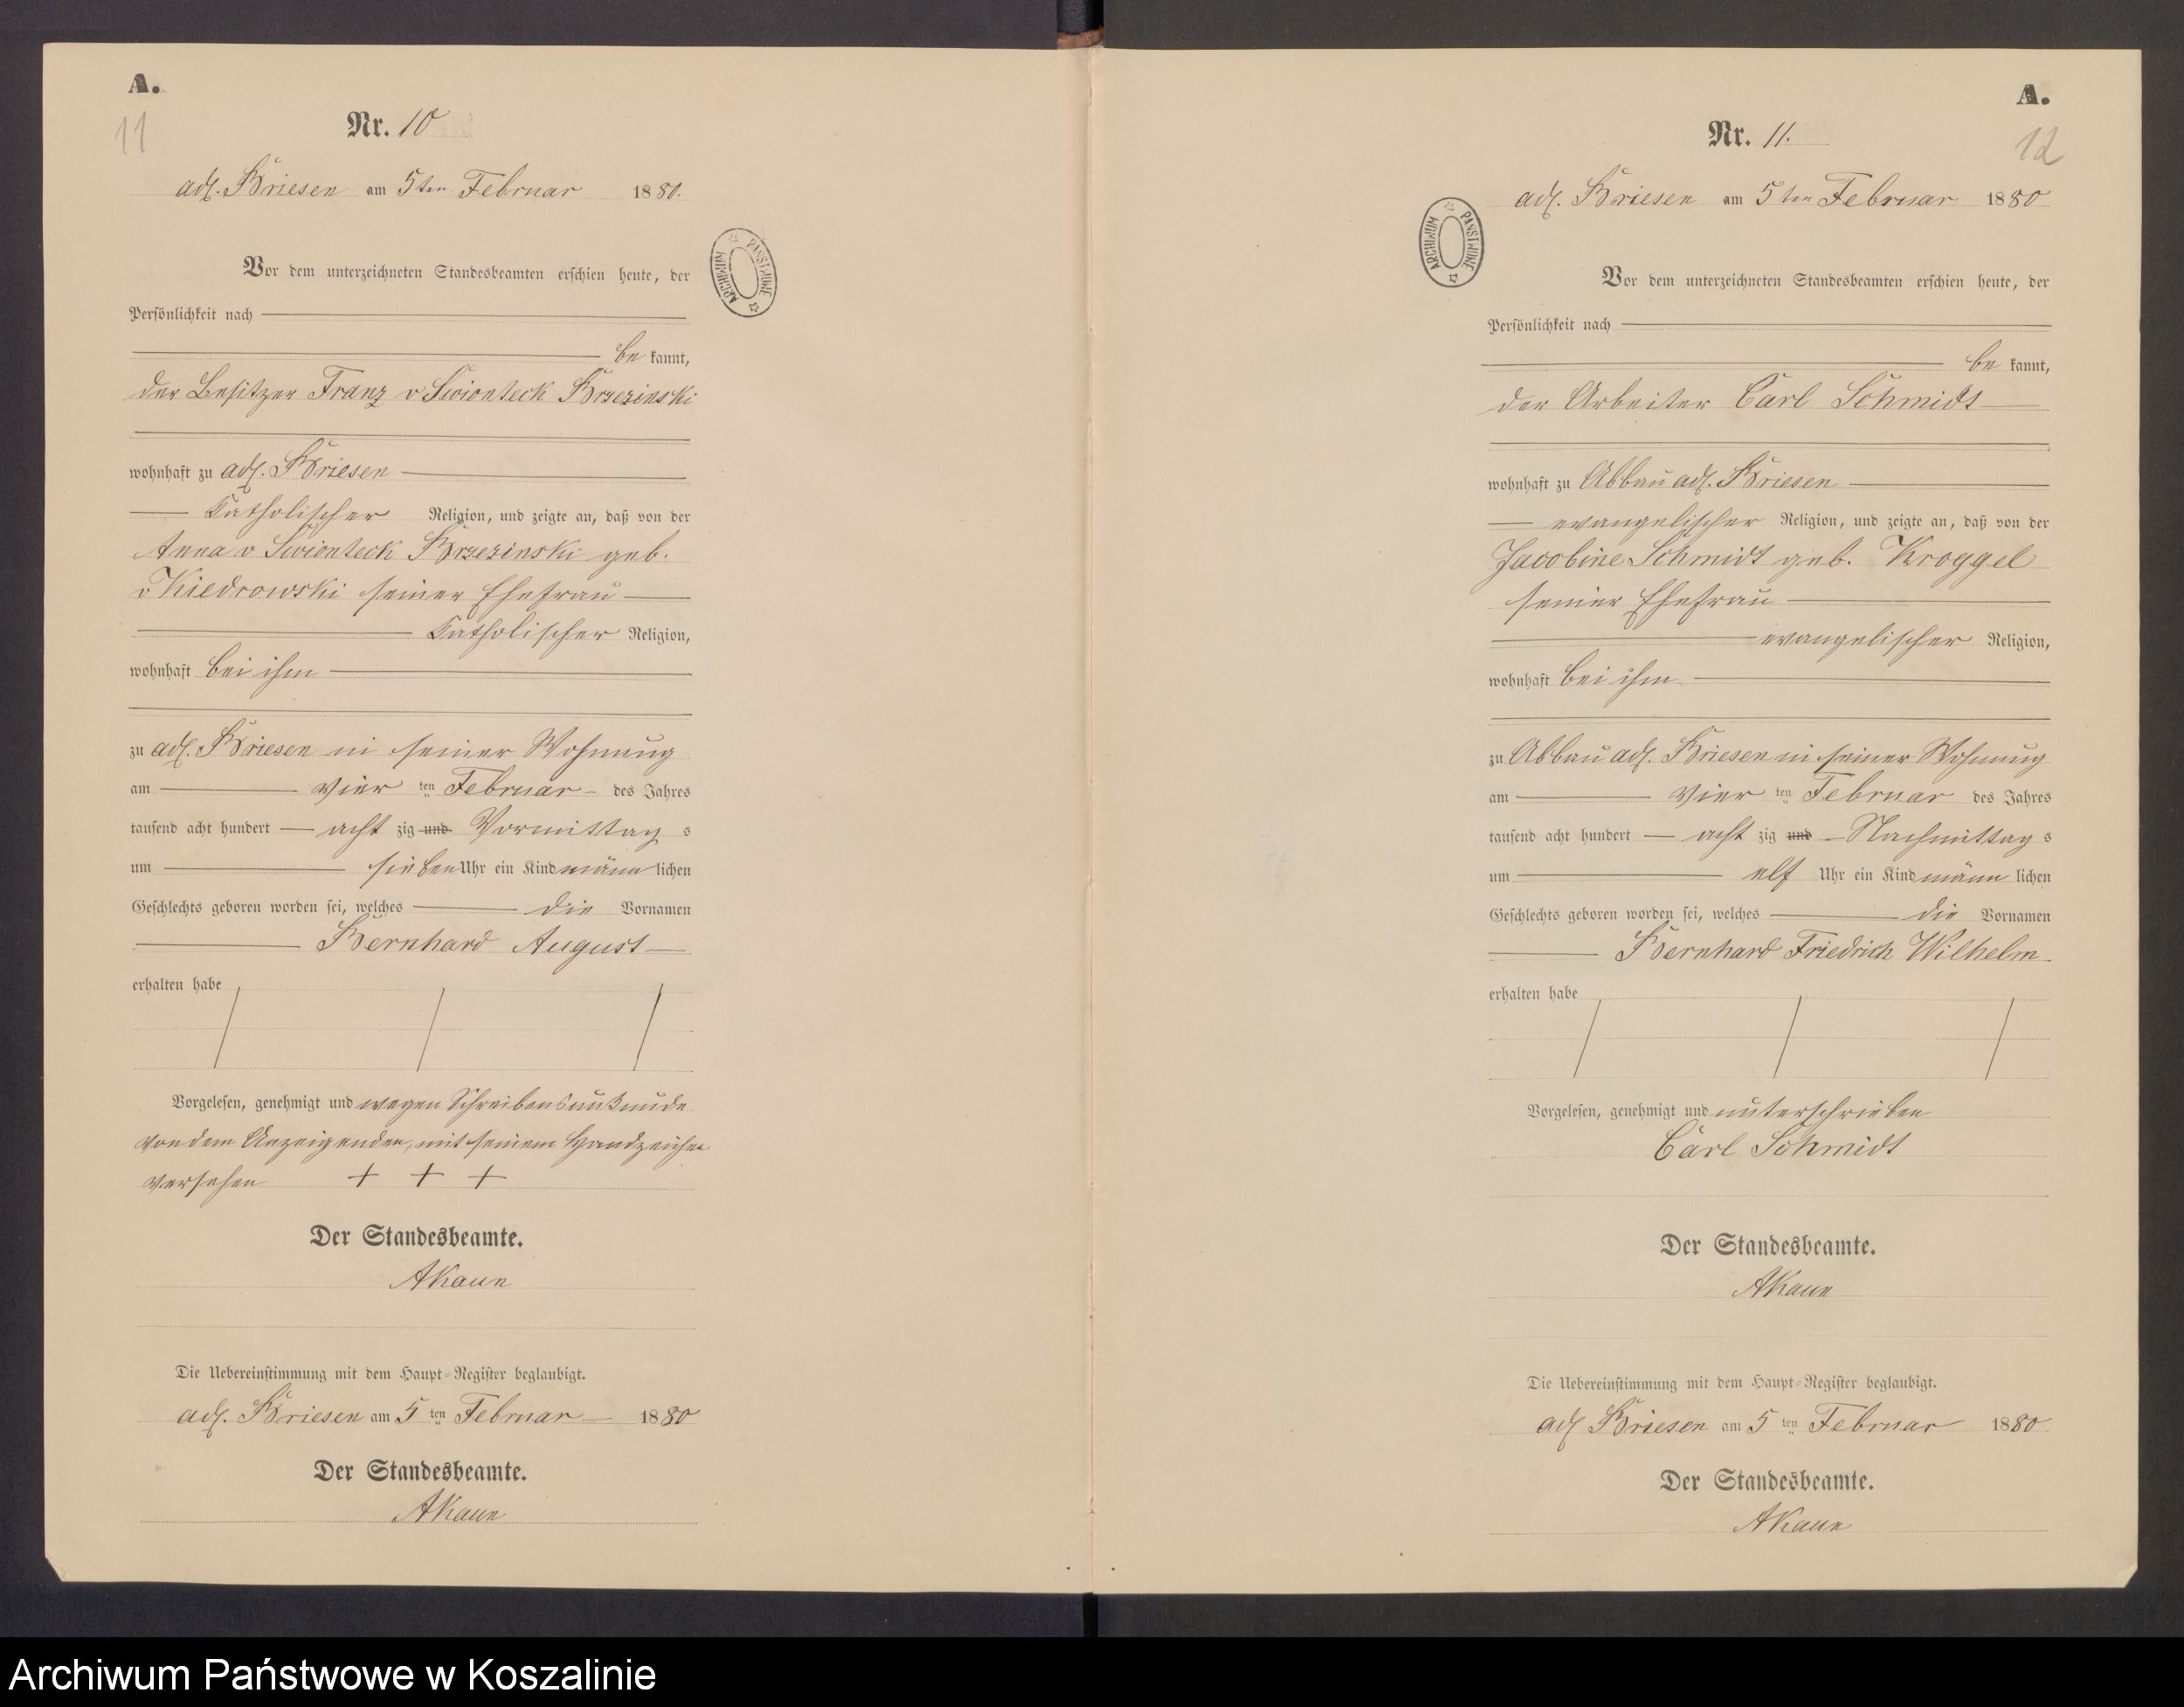 A.
11
Nr. 10
adl. Briesen am 5ten Februar 1880.
Vor dem unterzeichneten Standesbeamten erschien heute, der
Persönlichkeit nach
be kannt,
der Besitzer Franz v Swionteck Brzezinski
wohnhaft zu adl. Briesen
Catholischer Religion, und zeigte an, daß von der
Anna v Swionteck Brzezinski geb.
v Kiedrowski seiner Ehefrau
Catholischer Religion,
wohnhaft bei ihm
zu adl. Briesen in seiner Wohnung
am vier ten Februar des Jahres
tausend acht hundert acht zig und Vormittag s
um sieben Uhr ein Kind männ lichen
Geschlechts geboren worden sei, welches die Vornamen
Bernhard August
erhalten habe
Vorgelesen, genehmigt und wegen Schreibensunkunde
von dem Anzeigenden, mit seinem Handzeichen
versehen + + +
Der Standesbeamte.
AKaun
Die Uebereinstimmung mit dem Haupt-Register beglaubigt.
adl. Briesen am 5 ten Februar 1880
Der Standesbeamte.
AKaun
ARCHIWUM PAŃSTWOWE
A.
12
Nr. 11.
adl. Briesen am 5ten Februar 1880
Vor dem unterzeichneten Standesbeamten erschien heute, der
Persönlichkeit nach
be kannt,
der Arbeiter Carl Schmidt
wohnhaft zu Abbau adl. Briesen
evangelischer Religion, und zeigte an, daß von der
Jacobine Schmidt geb. Kroggel
seiner Ehefrau
evangelischer Religion,
wohnhaft bei ihm
zu Abbau adl. Briesen in seiner Wohnung
am vier ten Februar des Jahres
tausend acht hundert acht zig und Nachmittag s
um elf Uhr ein Kind männ lichen
Geschlechts geboren worden sei, welches die Vornamen
Bernhard Friedrich Wilhelm
erhalten habe
Vorgelesen, genehmigt und unterschrieben
Carl Schmidt
Der Standesbeamte.
AKaun
Die Uebereinstimmung mit dem Haupt-Register beglaubigt.
adl Briesen am 5 ten Februar 1880
Der Standesbeamte.
AKaun
ARCHIWUM PAŃSTWOWE
Archiwum Państwowe w Koszalinie